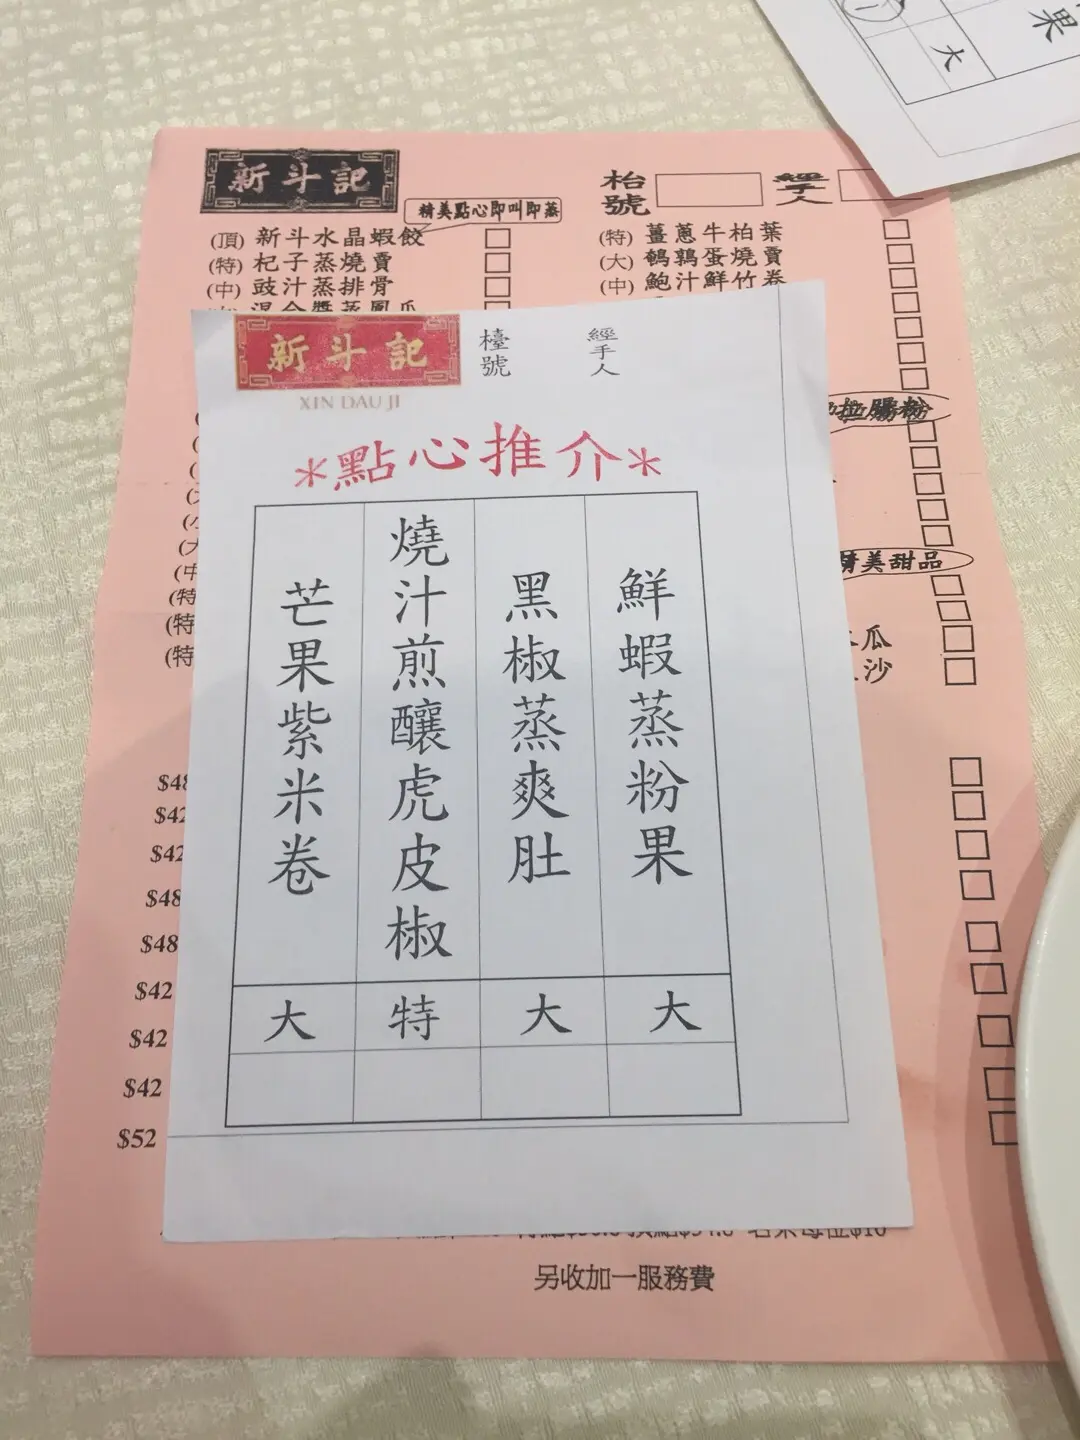 果
大
新斗記
精美點心即叫即蒸
枱號
經手人
(頂) 新斗水晶蝦餃
(特) 杞子蒸燒賣
(中) 豉汁蒸排骨
混合醬蒸鳳爪
(特) 薑蔥牛柏葉
(大) 鵪鶉蛋燒賣
(中) 鮑汁鮮竹卷
拉腸粉
精美甜品
瓜
沙
(大
(中
(特
(特
(特
$48
$42
$42
$48
$48
$42
$42
$42
$52
新斗記
XIN DAU JI
檯號
經手人
*點心推介*
鮮蝦蒸粉果
大
黑椒蒸爽肚
大
燒汁煎釀虎皮椒
特
芒果紫米卷
大
另收加一服務費